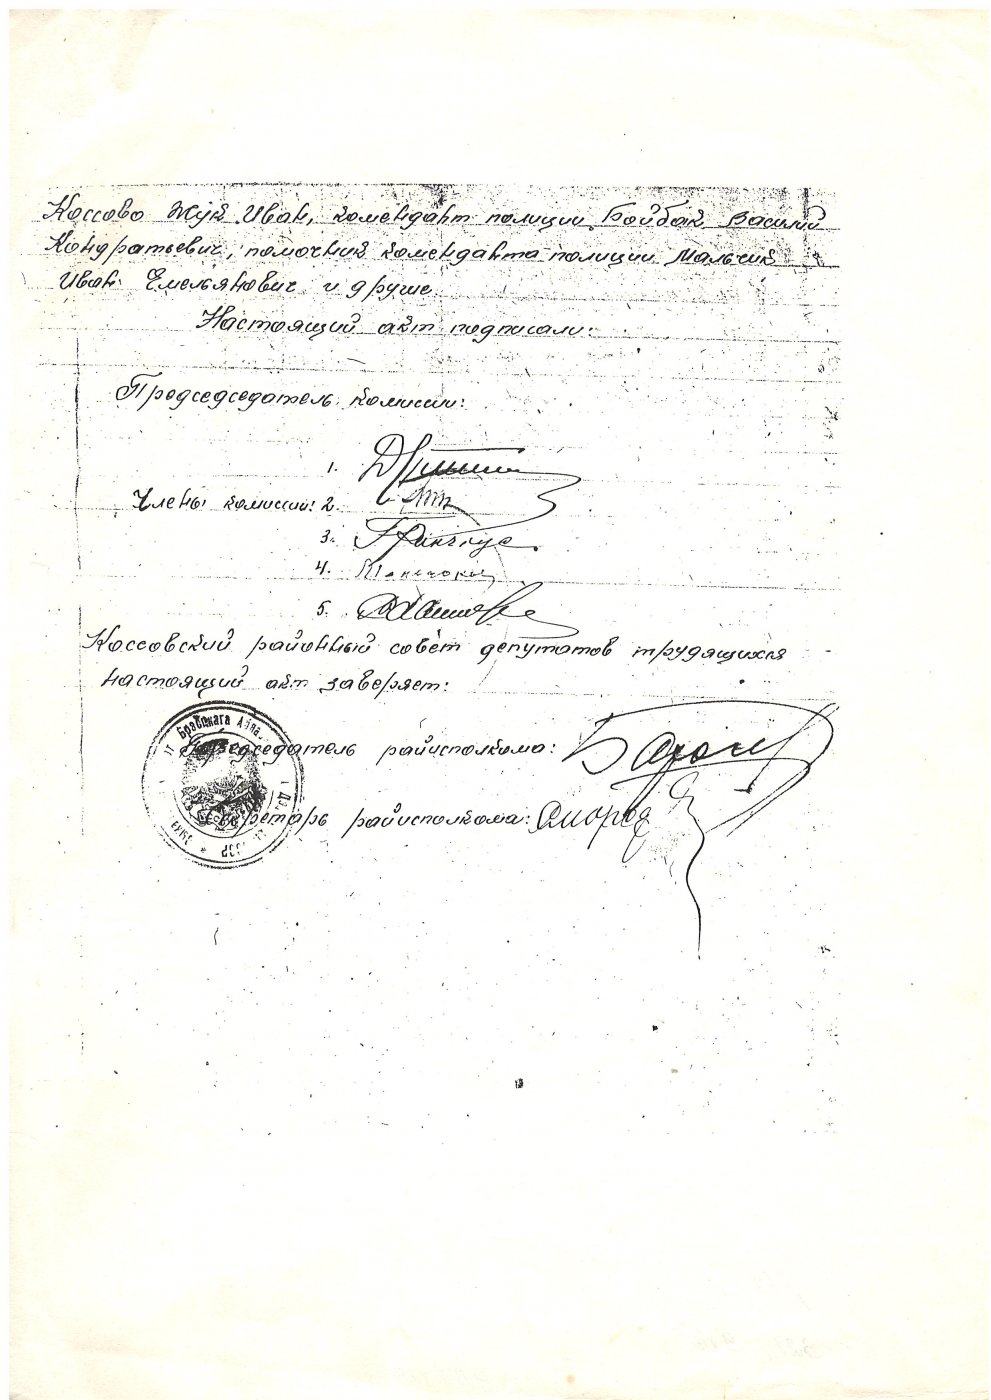 Коссово Жук Иван, комендант полиции Бойбак Василий
Кондратьевич, помочник коменданта полиции Мальчик
Иван Емельянович и друше
Настоящий акт подписали:
Председседатель комисии:
1.
Члены комиссии: 2.
3. Гринчус
4.
5.
Коссовский районный совет депутатов трудящихся
настоящий акт заверяет:
Председседатель райисполкома:
Секретарь райисполкома:
Брэсцкага